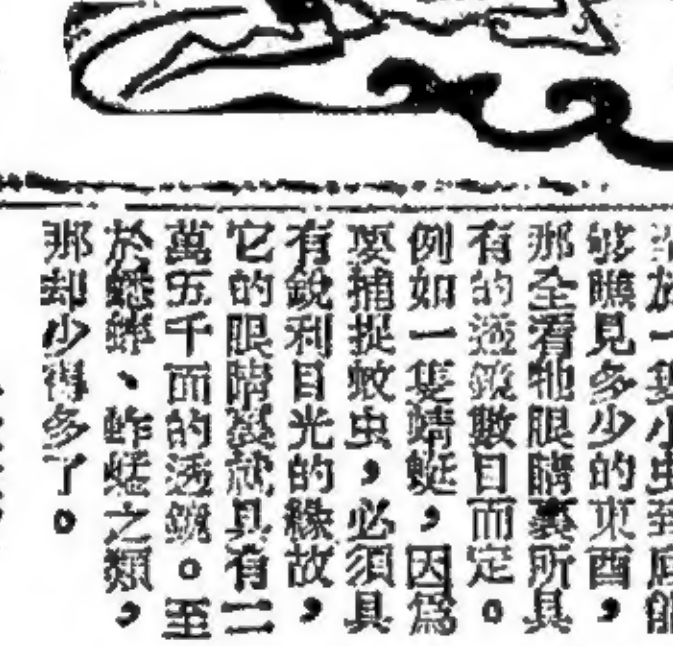 於一隻小虫到底能
够瞧見多少的東西，
那全看牠眼睛裏所具
有的透鏡數目而定。
例如一隻蜻蜓，因爲
要捕捉蚊虫，必須具
有銳利目光的緣故，
它的眼睛裏就具有二
萬五千面的透鏡。至
於蟋蟀、蚱蜢之類，
那却少得多了。